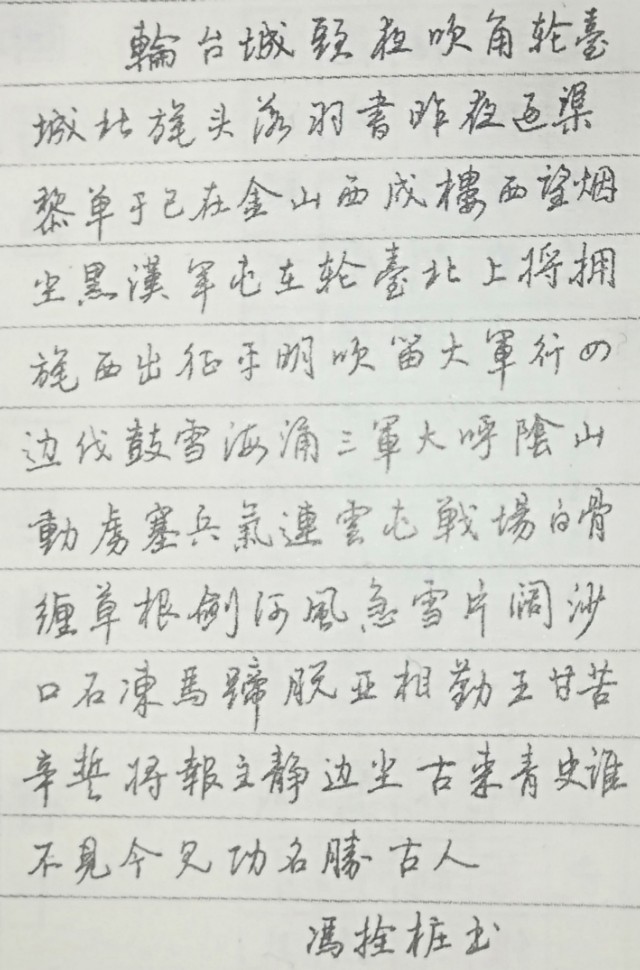 輪台城頭夜吹角轮臺
城北旄头落羽書昨夜过渠
黎单于已在金山西戍樓西望烟
尘黒漢军屯在轮臺北上将拥
旄西出征平明吹笛大軍行四
边伐鼓雪海涌三軍大呼陰山
動虏塞兵氣連雲屯戦場白骨
缠草根劍河風急雪片阔沙
口石凍馬蹄脱亚相勤王甘苦
辛誓将報主静边尘古来青史谁
不見今见功名勝古人
馮拴桩书